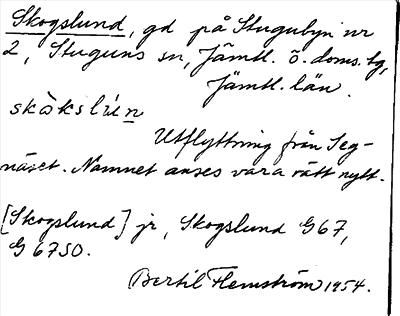 Skogslund, gd på Stugubyn nr
2, Stuguns sn, Jämtl. ö. doms. tg,
Jämtl. län.
skòkslún
Utflyttning från Seg-
näset. Namnet anses vara rätt nytt.
[Skogslund] jr, Skogslund G67,
G 6750.
Bertil Flemström 1954.